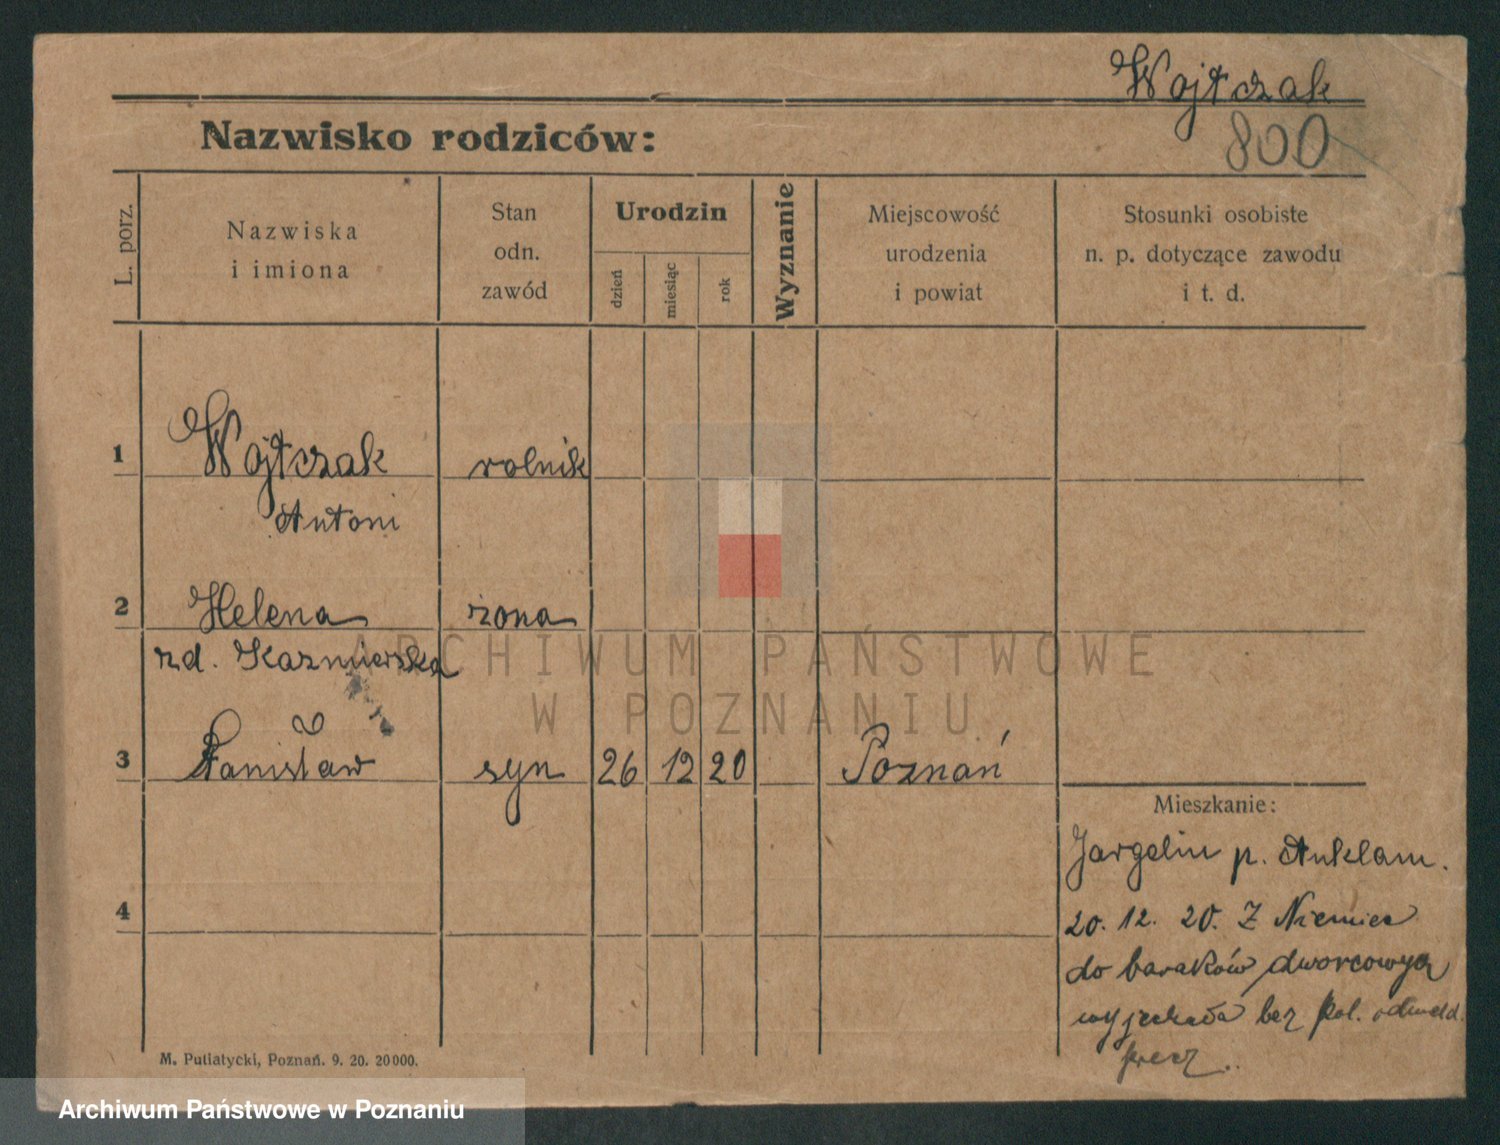 Wojtczak
Nazwisko rodziców:
800
L. porz.
Nazwiska
i imiona
Stan
odn.
zawód
Urodzin
dzień
miesiąc
rok
Wyznanie
Miejscowość
urodzenia
i powiat
Stosunki osobiste
n. p. dotyczące zawodu
i t. d.
1 Wojtczak rolnik
Antoni
2 Helena żona
rzd. Kaźmierska
ARCHIWUM PAŃSTWOWE
W POZNANIU
3 Stanisław syn 26 12 20 Poznań
Mieszkanie:
Jargelin p. Anklam.
4
20. 12. 20. Z Niemiec
do baraków dworcowych
wyjechała bez pol. odmeld.
precz.
M. Putiatycki, Poznań. 9. 20. 20000.
Archiwum Państwowe w Poznaniu